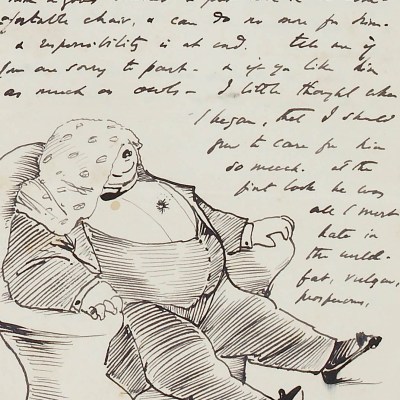 comfortable chair, & can do no more for him.
& responsibility is at end. tell me if
you are sorry to part - & if you like him
as much as owls - I little thought when
I began, that I should
grow to care for him
so much. at the
first look he was
all I most
hate in
the world -
fat, vulgar,
prosperous,